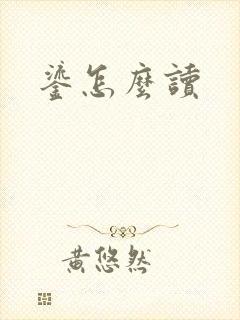 鎏怎麼讀
黃悠然